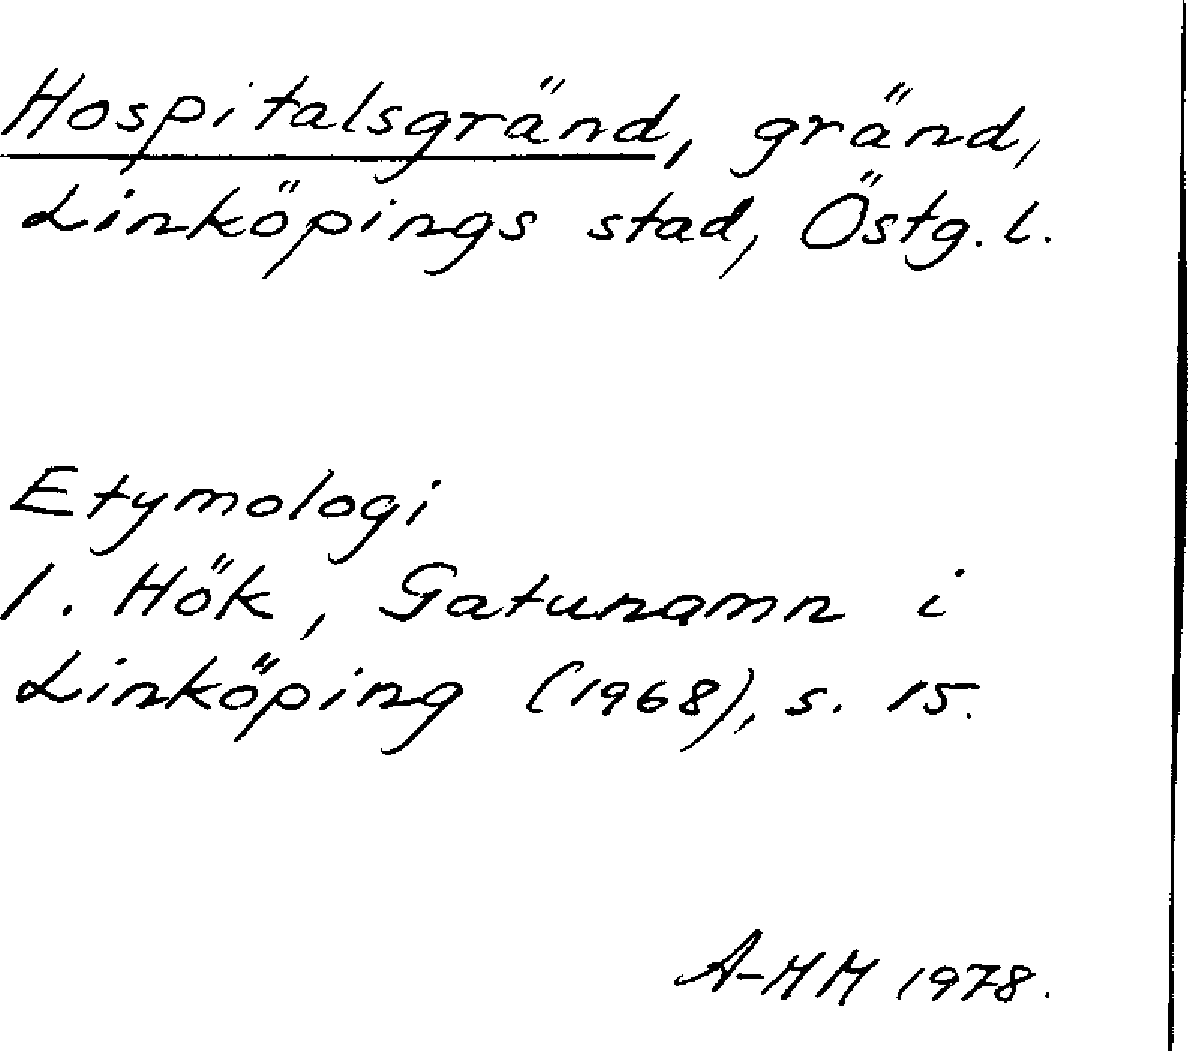 Hospitalsgränd, gränd,
Linköpings stad, Östg. l.
Etymologi
I. Hök, Gatunamn i
Linköping (1968), s. 15.
A-MM 1978.